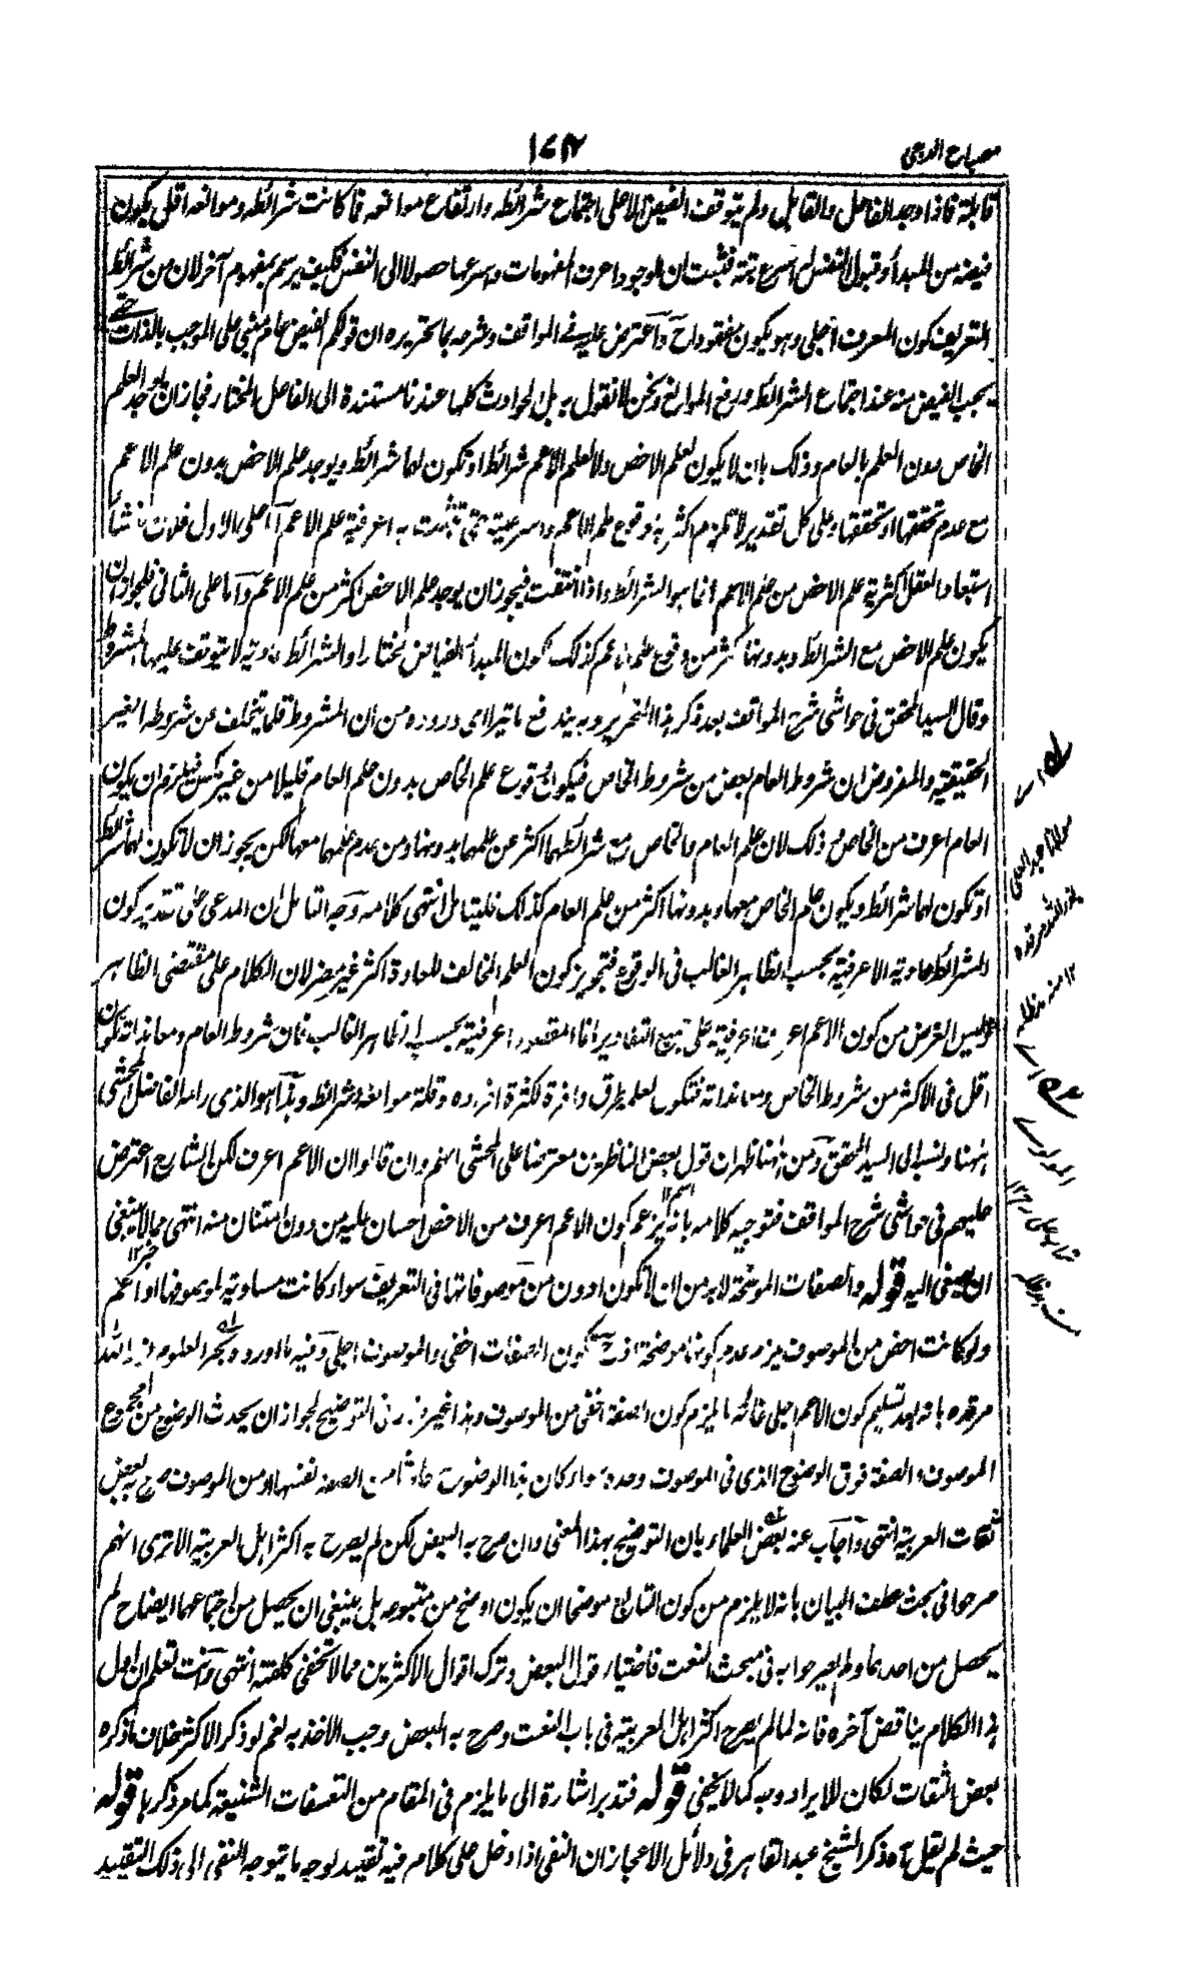 مصباح الدجى
١٧٢
قابلة فاذا وجد الفاعل والقابل ولم يتوقف الفيض الا على اجتماع شرائطه وارتفاع موانعه فما كانت شرائطه وموانعه اقل يكون
فيضه من المبدأ وقبول النفس له اسرع بتة فثبت ان الوجود اعرف المفهومات واسرعها حصولا الى النفس فكيف يرسم بمفهوم آخر لان من شرائط
التعريف كون المعرف اجلى وهو يكون مفقودا ح واعترض عليه في المواقف وشرحه بما تحريره ان قولكم الفيض عام مبني على الموجب بالذات حتى
يجب الفيض منه عند اجتماع الشرائط ورفع الموانع ونحن لا نقول به بل الحوادث كلها عندنا مستندة الى الفاعل المختار فجاز ان يوجد العلم
الخاص دون العلم بالعام وذلك بان لا يكون لعلم الاخص ولا لعلم الاعم شرائط او تكون لهما شرائط ويوجد علم الاخص بدون علم الاعم
مع عدم تحققها او تحققها وعلى كل تقدير لا تلزم اكثرية وقوع علم الاعم واسرعيته حتى تثبت به اعرفية علم الاعم اما على الاول فلان منشأ
استبعاد العقل اكثرية علم الاخص من علم الاعم انما هو الشرائط واذا انتفت فيجوز ان يوجد علم الاخص اكثر من علم الاعم واما على الثاني فلجواز ان
يكون علم الاخص مع الشرائط وبدونها اكثر من وقوع علم الاعم كذلك لكون المبدأ الفياض مختارا والشرائط عادية لا يتوقف عليها المشروط
وقال السيد المحقق في حواشي شرح المواقف بعد ذكر هذا التحرير وبه يندفع ما يتراءى وروده من ان المشروط قلما يتخلف عن شروطه الغير
الحقيقية والمفروض ان شروط العام بعض من شروط الخاص فيكون وقوع علم الخاص بدون علم العام قليلا من غير عكس فيلزم ان يكون
العام اعرف من الخاص وذلك لان علم العام والخاص مع شرائطهما اكثر عن علمهما بدونها ومن عدم علمهما معها لكن يجوز ان لا تكون لهما شرائط
او تكون لهما شرائط ويكون علم الخاص معها وبدونها اكثر من علم العام كذلك فليتأمل انتهى كلامه وجه التامل ان المدعى حتى تقدير كون
الشرائط عادية الاعرفية بحسب الظاهر الغالب في الوقوع فتجويز كون العلم المخالف للعادة اكثر غير مضر لان الكلام على مقتضى الظاهر
وليس الغرض من كون الاعم اعرف اعرفيته على جميع التقادير انما المقصود اعرفيته بحسب الظاهر الغالب فان شروط العام ومعانداته تكون
اقل في الاكثر من شروط الخاص ومعانداته فتكون لعلمه طرق وافرة لكثرة افراده وقلة موانعه وشرائطه وهذا هو الذي رامه الفاضل المحشي
ههنا ونسبه الى السيد المحقق ومن ههنا ظهر ان قول بعض الناظرين معترضا على المحشي انهم وان قالوا ان الاعم اعرف لكن الشارح اعترض
عليهم في حواشي شرح المواقف فتوجيه كلامه بانه يزعم كون الاعم اعرف من الاخص احسان عليه من دون امتنان منه انتهى مما لا ينبغي
ان يصغى اليه قوله والصفات الموضحة لا بد من ان لا تكون ادون من موصوفاتها في التعريف سواء كانت مساوية لموصوفها او اعم
ولو كانت اخص من الموصوف يلزم عدم كونها موضحة اذ ح تكون الصفات اخفى والموصوف اجلى وفيه ما اورده بحر العلوم نور الله
مرقده بانه بعد تسليم كون الاعم اجلى غاية ما يلزم كون الصفة اخفى من الموصوف وهذا غير ضار في التوضيح لجواز ان يحدث الوضوح من المجموع
الموصوف والصفة فوق الوضوح الذي في الموصوف وحده سواء كان هذا الوضوح حادثا من الصفة نفسها او من الموصوف صرح به بعض
ثقات العربية انتهى واجاب عنه بعض العلماء بان التوضيح بهذا المعنى وان صرح به البعض لكن لم يصرح به اكثر اهل العربية الا ترى انهم
صرحوا في بحث عطف البيان بانه لا يلزم من كون الثاني موضحا ان يكون اوضح من متبوعه بل ينبغي ان يحصل من اجتماعهما ايضاح لم
يحصل من احدهما ولم يصرحوا به في مبحث النعت فاختيار قول البعض وترك اقوال الاكثرين مما لا تخفى كلفته انتهى وانت تعلم ان اول
هذا الكلام يناقض آخره فانه لما لم يصرح اكثر اهل العربية في باب النعت وصرح به البعض وجب الاخذ به نعم لو ذكر الاكثر خلاف ما ذكره
بعض الثقات لكان للايراد وجه كما لا يخفى قوله فتدبر اشارة الى ما يلزم في المقام من التعسفات الشنيعة كما مر ذكرها قوله
حيث لم يقل آه ذكر الشيخ عبد القاهر في دلائل الاعجاز ان النفي اذا دخل على كلام فيه تقييد بوجه ما يتوجه النفي الى ذلك التقييد
مولانا عبد العلي
نور الله مرقده
١٢ منه مدظله
اى
المولوي
تراب علي ١٢
منه مدظله